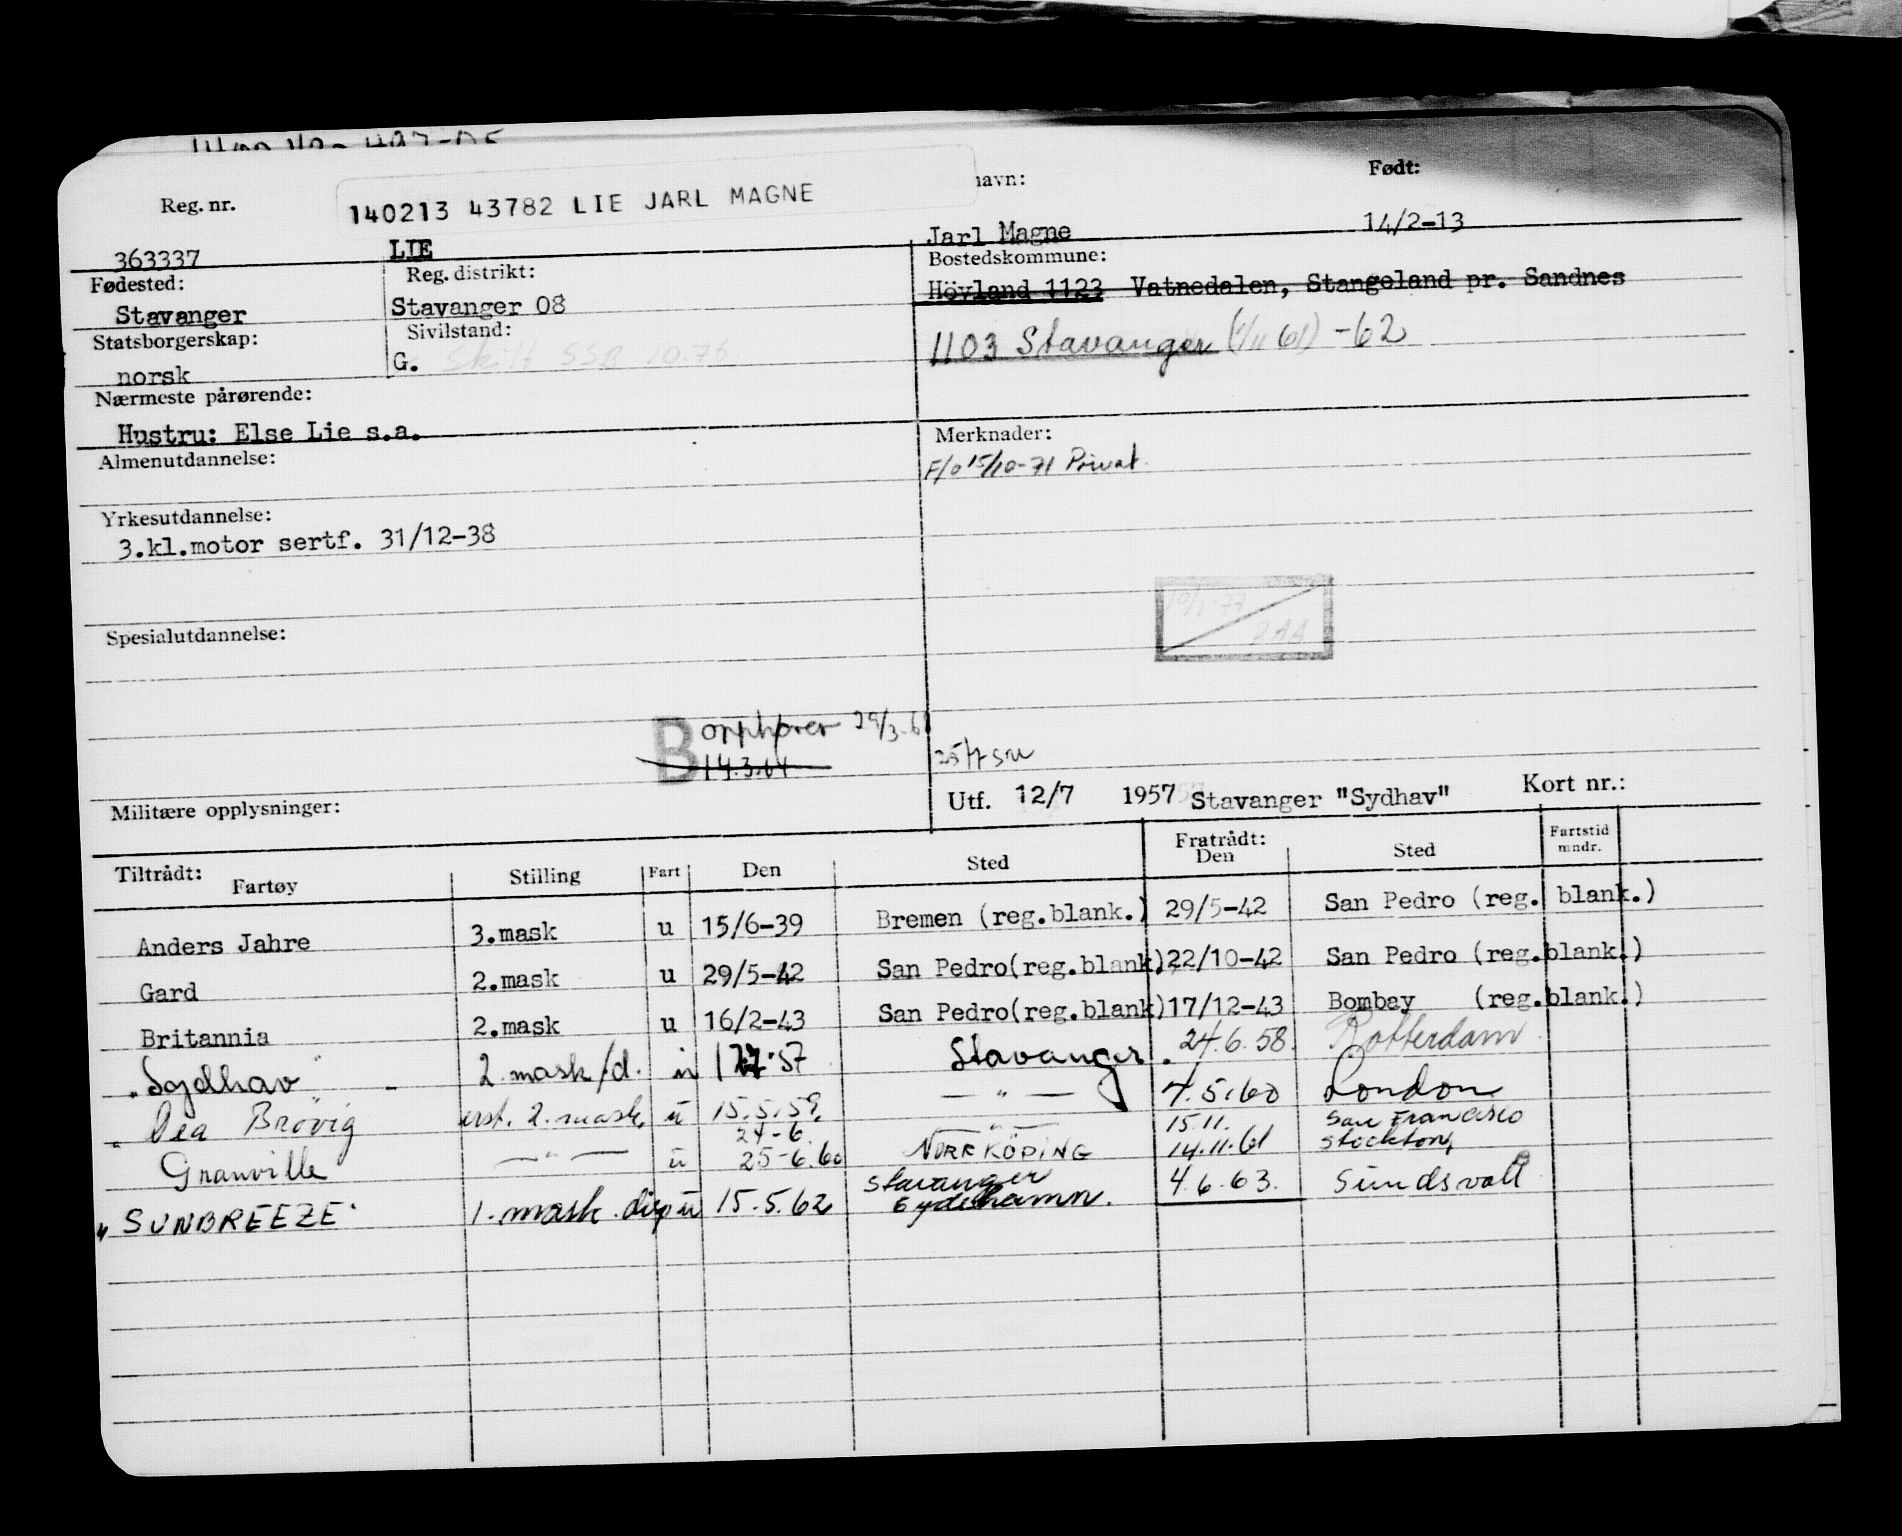 Reg. nr.
140213 43782 LIE JARL MAGNE
navn:
Født:
363337
LIE
Jarl Magne
14/2-13
Fødested:
Reg. distrikt:
Bostedskommune:
Stavanger
Stavanger 08
Höyland 1123 Vatnedalen, Stangeland pr. Sandnes
Statsborgerskap:
Sivilstand:
1103 Stavanger -62
norsk
G. Skilt SSB 10.76
Nærmeste pårørende:
Hustru: Else Lie s.a.
Merknader:
Almenutdannelse:
F/o 15/10-71 Privat
Yrkesutdannelse:
3.kl.motor sertf. 31/12-38
Spesialutdannelse:
B opphører
14.3.64
Militære opplysninger:
Utf. 12/7 1957 Stavanger "Sydhav"
Kort nr.:
Tiltrådt:
Fartøy
Stilling
Fart
Den
Sted
Fratrådt:
Den
Sted
Fartstid
mndr.
Anders Jahre 3.mask u 15/6-39 Bremen (reg.blank.) 29/5-42 San Pedro (reg. blank.)
Gard 2.mask u 29/5-42 San Pedro(reg.blank). 22/10-42 San Pedro (reg.blank.)
Britannia 2.mask u 16/2-43 San Pedro(reg.blank) 17/12-43 Bombay (reg.blank.)
"Sydhav" 2 mask/d. Stavanger. 24.6.58. Rotterdam
" Dea Brøvig 2. mask. u 15.5.59. — " — 7.5.60 London
24-6. 15.11. San Francisco
Granville — " — u 25-6.60 NORRKÖPING 14.11.61 Stockton
"SUNBREEZE" 1. mask. disp u 15.5.62 Stavanger Eydehamn. 4.6.63. Sundsvall